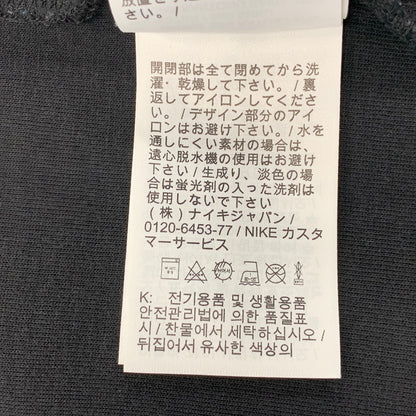 放置を
さい。/
開閉部は全て閉めてから洗
濯・乾燥して下さい。/ 裏
返してアイロンしてくださ
い。/ デザイン部分のアイ
ロンはお避け下さい。/ 水を
通しにくい素材の場合は、
遠心脱水機の使用はお避け
下さい / 生成り、淡色の場
合は蛍光剤の入った洗剤は
使用しないで下さい
(株) ナイキジャパン /
0120-6453-77 / NIKE カスタ
マーサービス
K: 전기용품 및 생활용품
안전관리법에 의한 품질표
시 / 찬물에서 세탁하십시오 /
뒤집어서 유사한 색상의